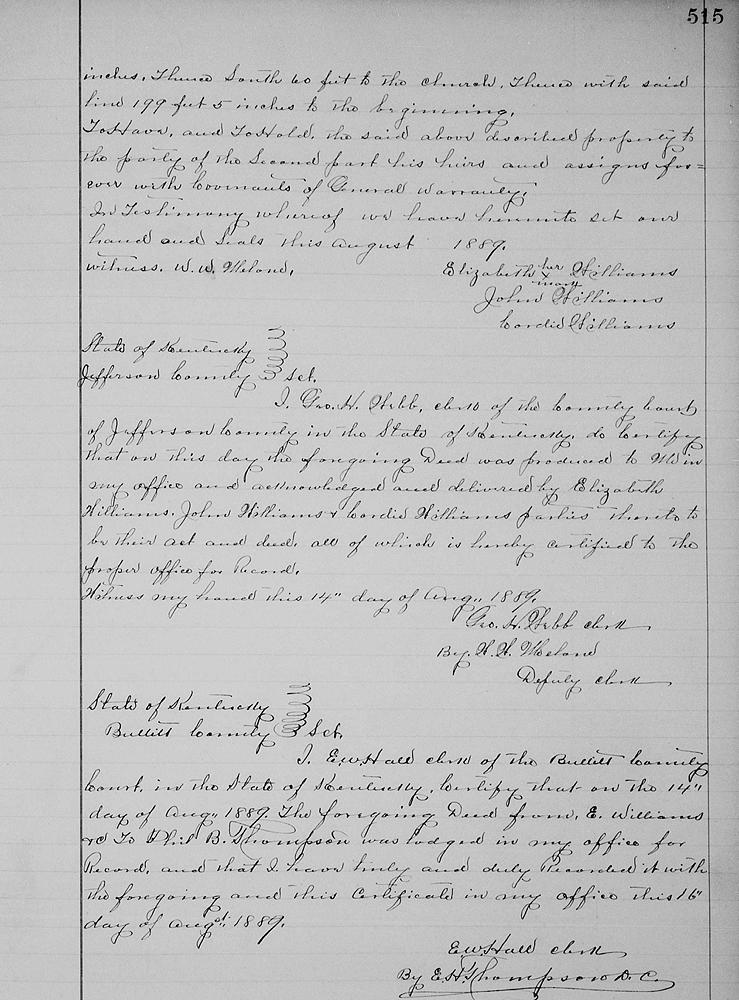 515
inches, Thence South 60 feet to the church, Thence with said
line 199 feet 5 inches to the beginning.
To Have, and To Hold, the said above described property to
the party of the Second part his heirs and assigns for=
ever with Covenants of General Warranty.
In Testimony whereof we have hereunto set our
hand and Seals this August 1889.
witness. W. W.
Elizabeth her x mark Williams
John Williams
Cordie Williams
State of Kentucky
Jefferson County Sct.
I. Geo. H. Webb, clerk of the County Court
of Jefferson County in the State of Kentucky, do Certify
that on this day the foregoing Deed was produced to Me in
my office and acknowledged and delivered by Elizabeth
Williams. John Williams & Cordie Williams parties thereto to
be their act and deed, all of which is hereby certified to the
proper office for Record.
Witness my hand this 14" day of Aug., 1889.
Geo. H. Webb clerk
By.
Deputy clerk
State of Kentucky
Bullitt County Sct.
I. E.W. Hall clerk of the Bullitt County
Court, in the State of Kentucky, Certify that on the 14"
day of Aug., 1889. The foregoing Deed from, E. Williams
&c To Phil B. Thompson was lodged in my office for
Record, and that I have truly and duly Recorded it with
the foregoing and this Certificate in my office this 16"
day of Augst. 1889.
E W Hall clerk
By E. H. Thompson D. C.